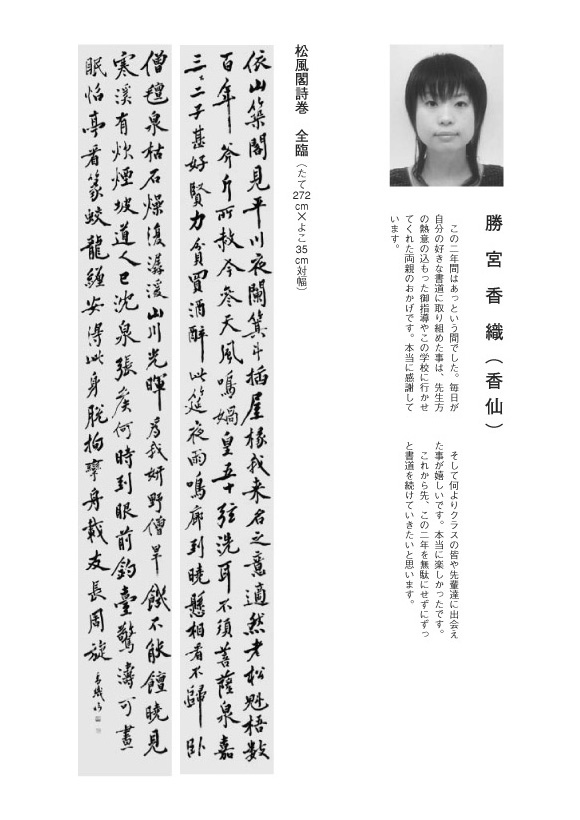 勝宮香織（香仙）
この二年間はあっという間でした。毎日が
自分の好きな書道に取り組めた事は、先生方
の熱意の込もった御指導やこの学校に行かせ
てくれた両親のおかげです。本当に感謝して
います。
そして何よりクラスの皆や先輩達に出会え
た事が嬉しいです。本当に楽しかったです。
これから先、この二年を無駄にせずにずっ
と書道を続けていきたいと思います。
松風閣詩巻　全臨（たて272cm×よこ35cm対幅）
依山築閣見平川夜闌箕斗插屋椽我来名之意適然老松魁梧数
百年斧斤所赦今参天風鳴媧皇五十弦洗耳不須菩薩泉嘉
三〻二子甚好賢力貧買酒醉此筵夜雨鳴廊到曉懸相看不歸卧
僧氈泉枯石燥復潺湲山川光暉為我妍野僧旱饑不能饘曉見
寒溪有炊煙坡道人已沈泉張侯何時到眼前釣臺驚濤可晝
眠怡亭看篆蛟龍纏安得此身脱拘攣舟載友長周旋